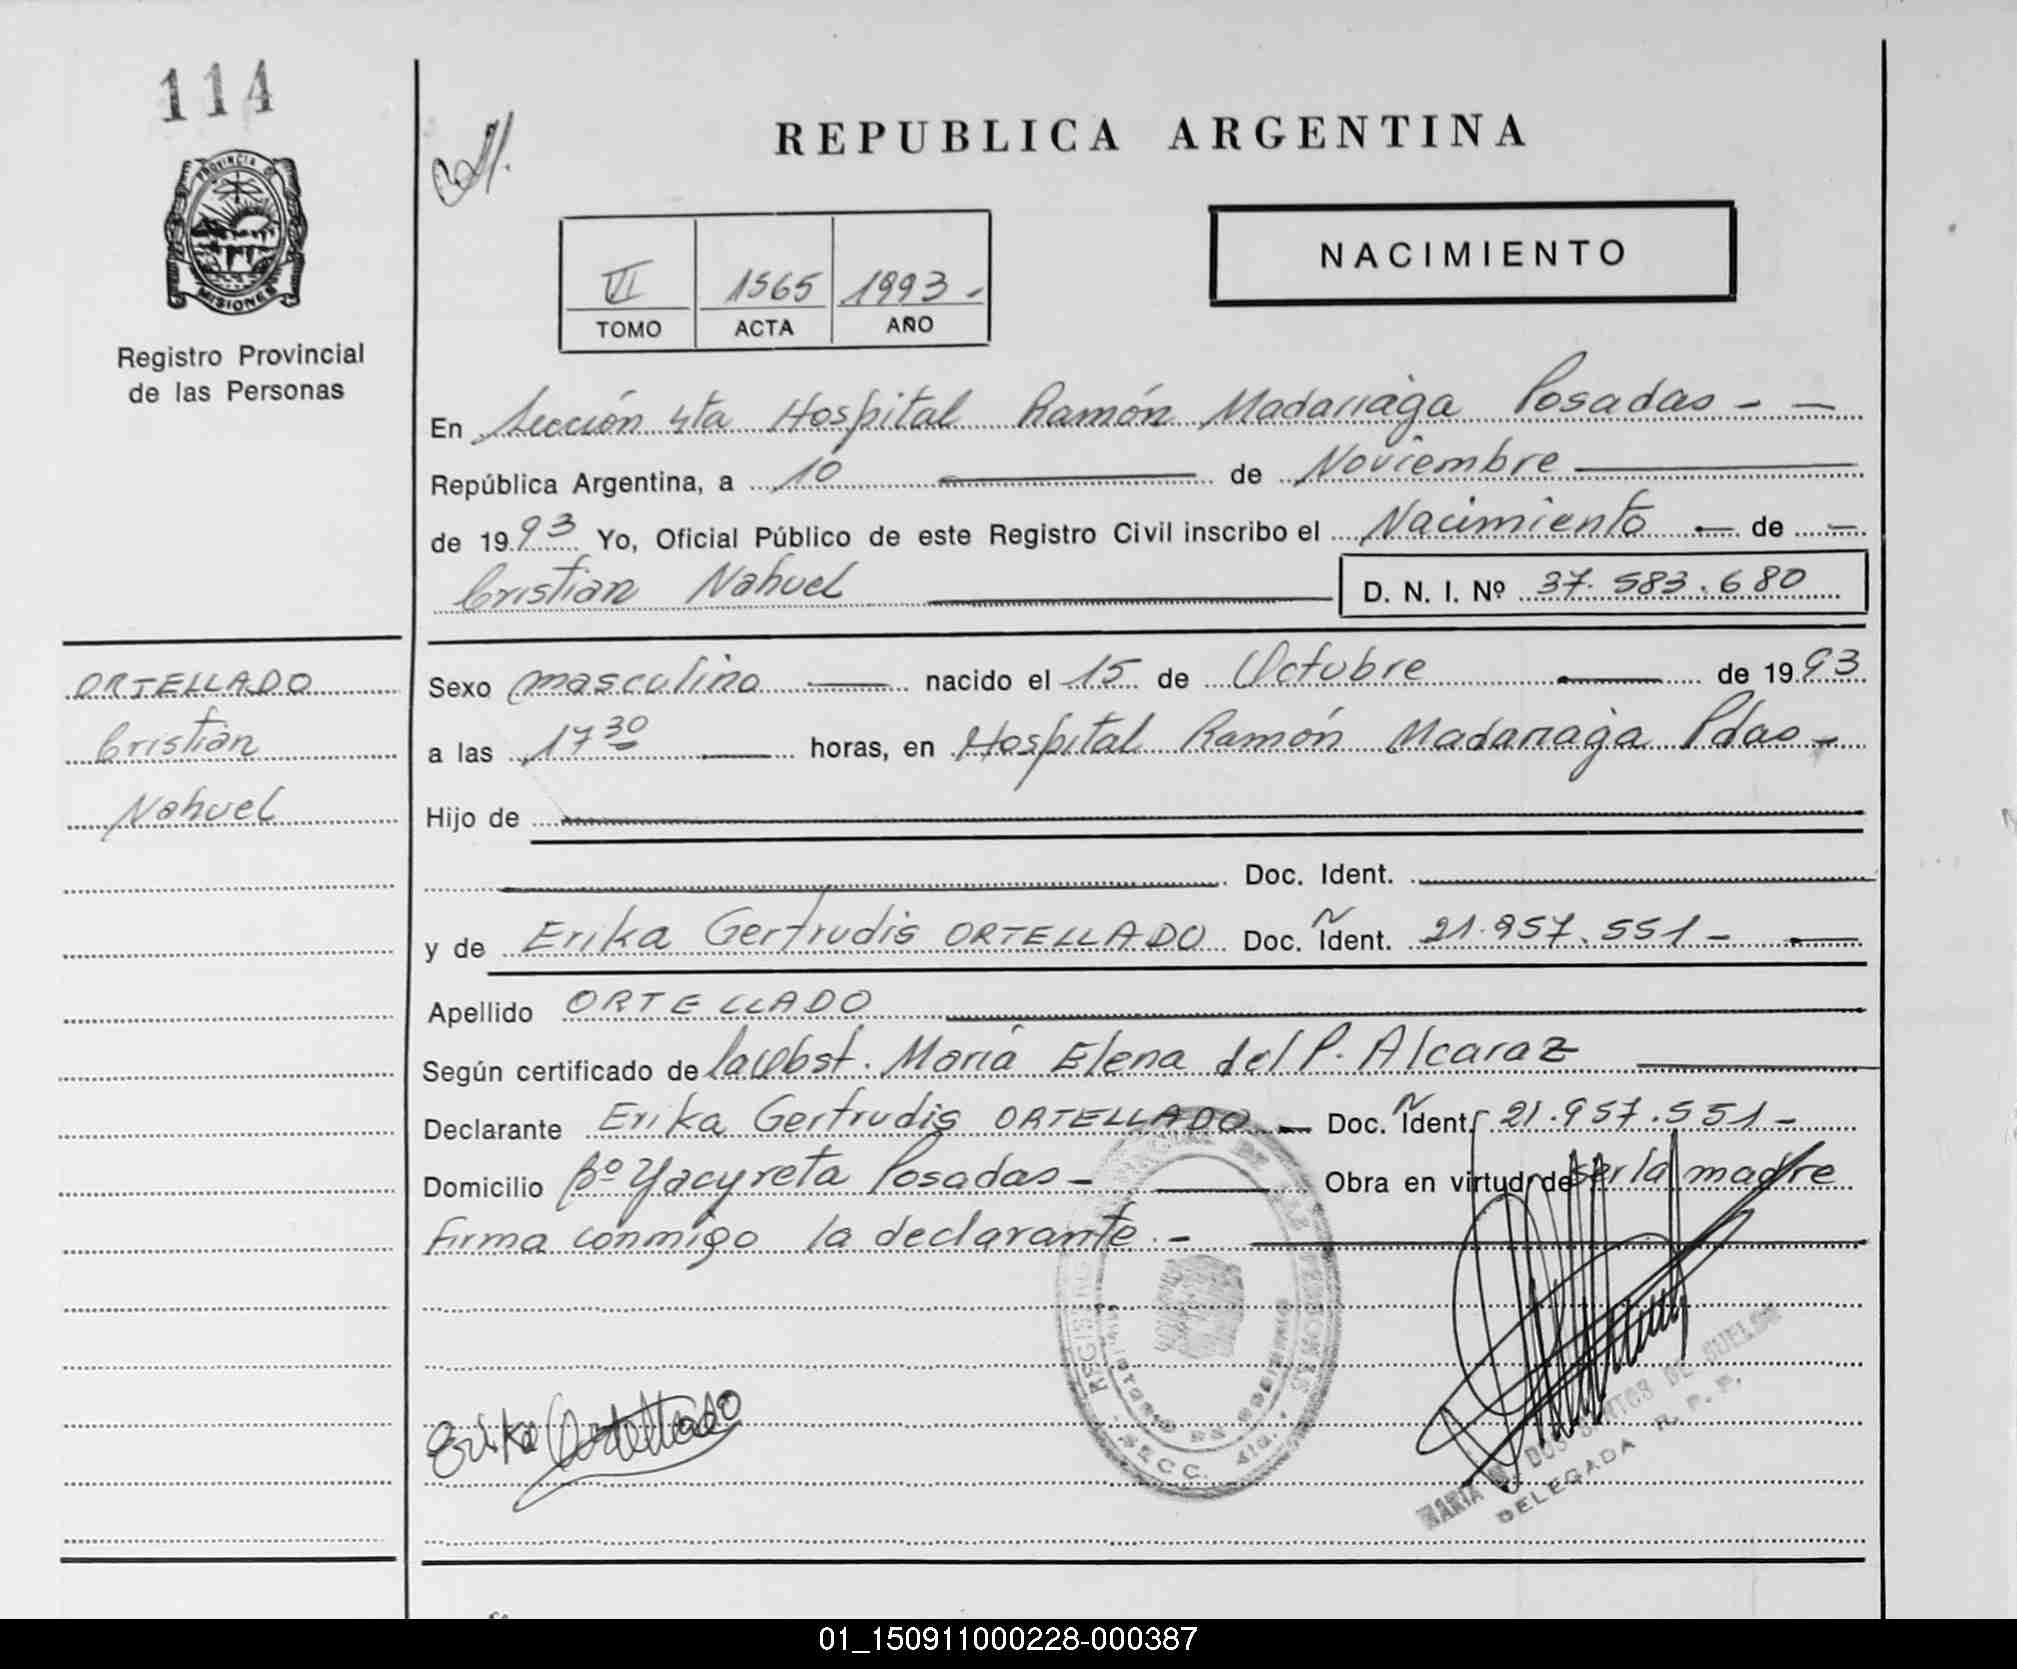 114
PROVINCIA DE
MISIONES
Registro Provincial
de las Personas
REPUBLICA ARGENTINA
NACIMIENTO
VI 1565 1993 -
TOMO ACTA AÑO
En Sección 4ta Hospital Ramón Madariaga Posadas - -
República Argentina, a 10 de Noviembre
de 1993 Yo, Oficial Público de este Registro Civil inscribo el Nacimiento — de —
Cristian Nahuel D. N. I. Nº 37.583.680
ORTELLADO
Cristian
Nahuel
Sexo masculino nacido el 15 de Octubre de 1993
a las 17 30 horas, en Hospital Ramón Madariaga Pdas -
Hijo de
Doc. Ident.
y de Erika Gertrudis ORTELLADO Doc. Ident. 21.957.551 -
Apellido ORTELLADO
Según certificado de la Obst. María Elena del P. Alcaraz
Declarante Erika Gertrudis ORTELLADO - Doc. Ident. 21.957.551 -
Domicilio Bº Yacyreta Posadas - Obra en virtud de ser la madre
Firma conmigo la declarante. -
REGISTRO PROVINCIAL DE LAS PERSONAS
MINISTERIO DE GOBIERNO
SECC. 4ta.
Erika Ortellado
MARIA DOS SANTOS DE
DELEGADA R. P. P.
01_150911000228-000387